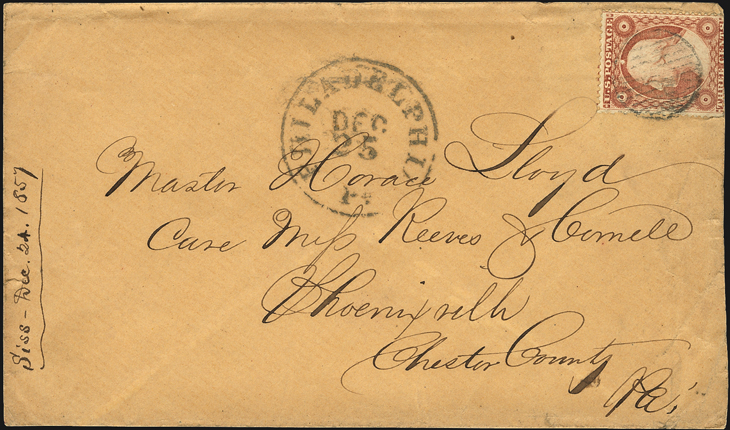 U.S. POSTAGE
THREE CENTS
PHILADELPHIA
DEC
25
Pa
Master Horace Lloyd
Care Mess Reeves & Cornell
Phoenixville
Chester County
Pa,
Siss - Dec. 24. 1857